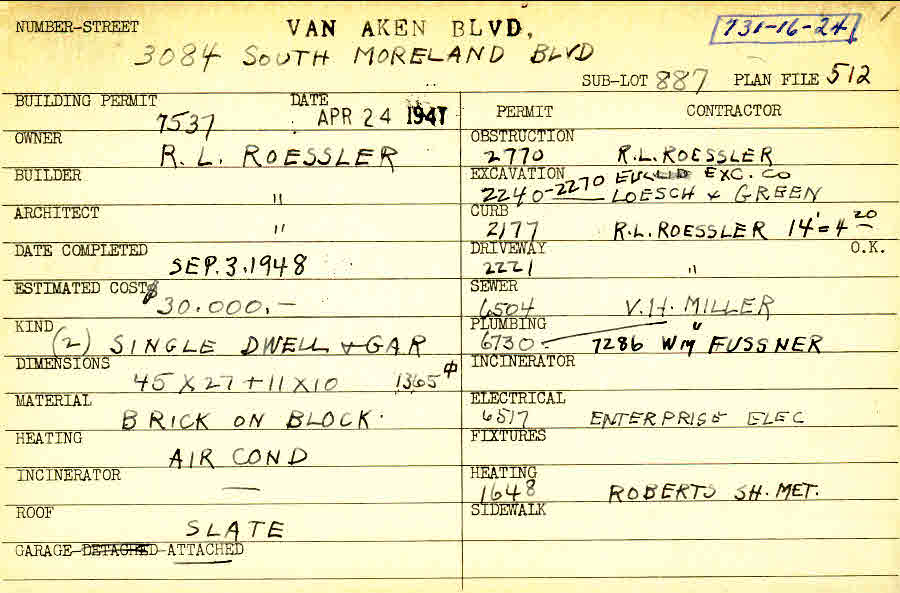 NUMBER-STREET VAN AKEN BLVD, 731-16-24
3084 SOUTH MORELAND BLVD
SUB-LOT 887 PLAN FILE 512
BUILDING PERMIT 7537 DATE APR 24 1947
OWNER R. L. ROESSLER
BUILDER "
ARCHITECT "
DATE COMPLETED SEP. 3, 1948
ESTIMATED COST $ 30.000.-
KIND (2) SINGLE DWELL & GAR
DIMENSIONS 45 X 27 + 11 X 10 1365
MATERIAL BRICK ON BLOCK.
HEATING AIR COND
INCINERATOR —
ROOF SLATE
GARAGE-DETACHED-ATTACHED
PERMIT CONTRACTOR
OBSTRUCTION 2770 R.L. ROESSLER
EXCAVATION 2240-2270 EUCLID EXC. CO
LOESCH & GREEN
CURB 2177 R.L. ROESSLER 14' = 4 20
DRIVEWAY 2221 " O.K.
SEWER 6504 V.H. MILLER
PLUMBING 6730 - " 7286 WM FUSSNER
INCINERATOR
ELECTRICAL 6517 ENTERPRISE ELEC
FIXTURES
HEATING 1648 ROBERTS SH. MET.
SIDEWALK